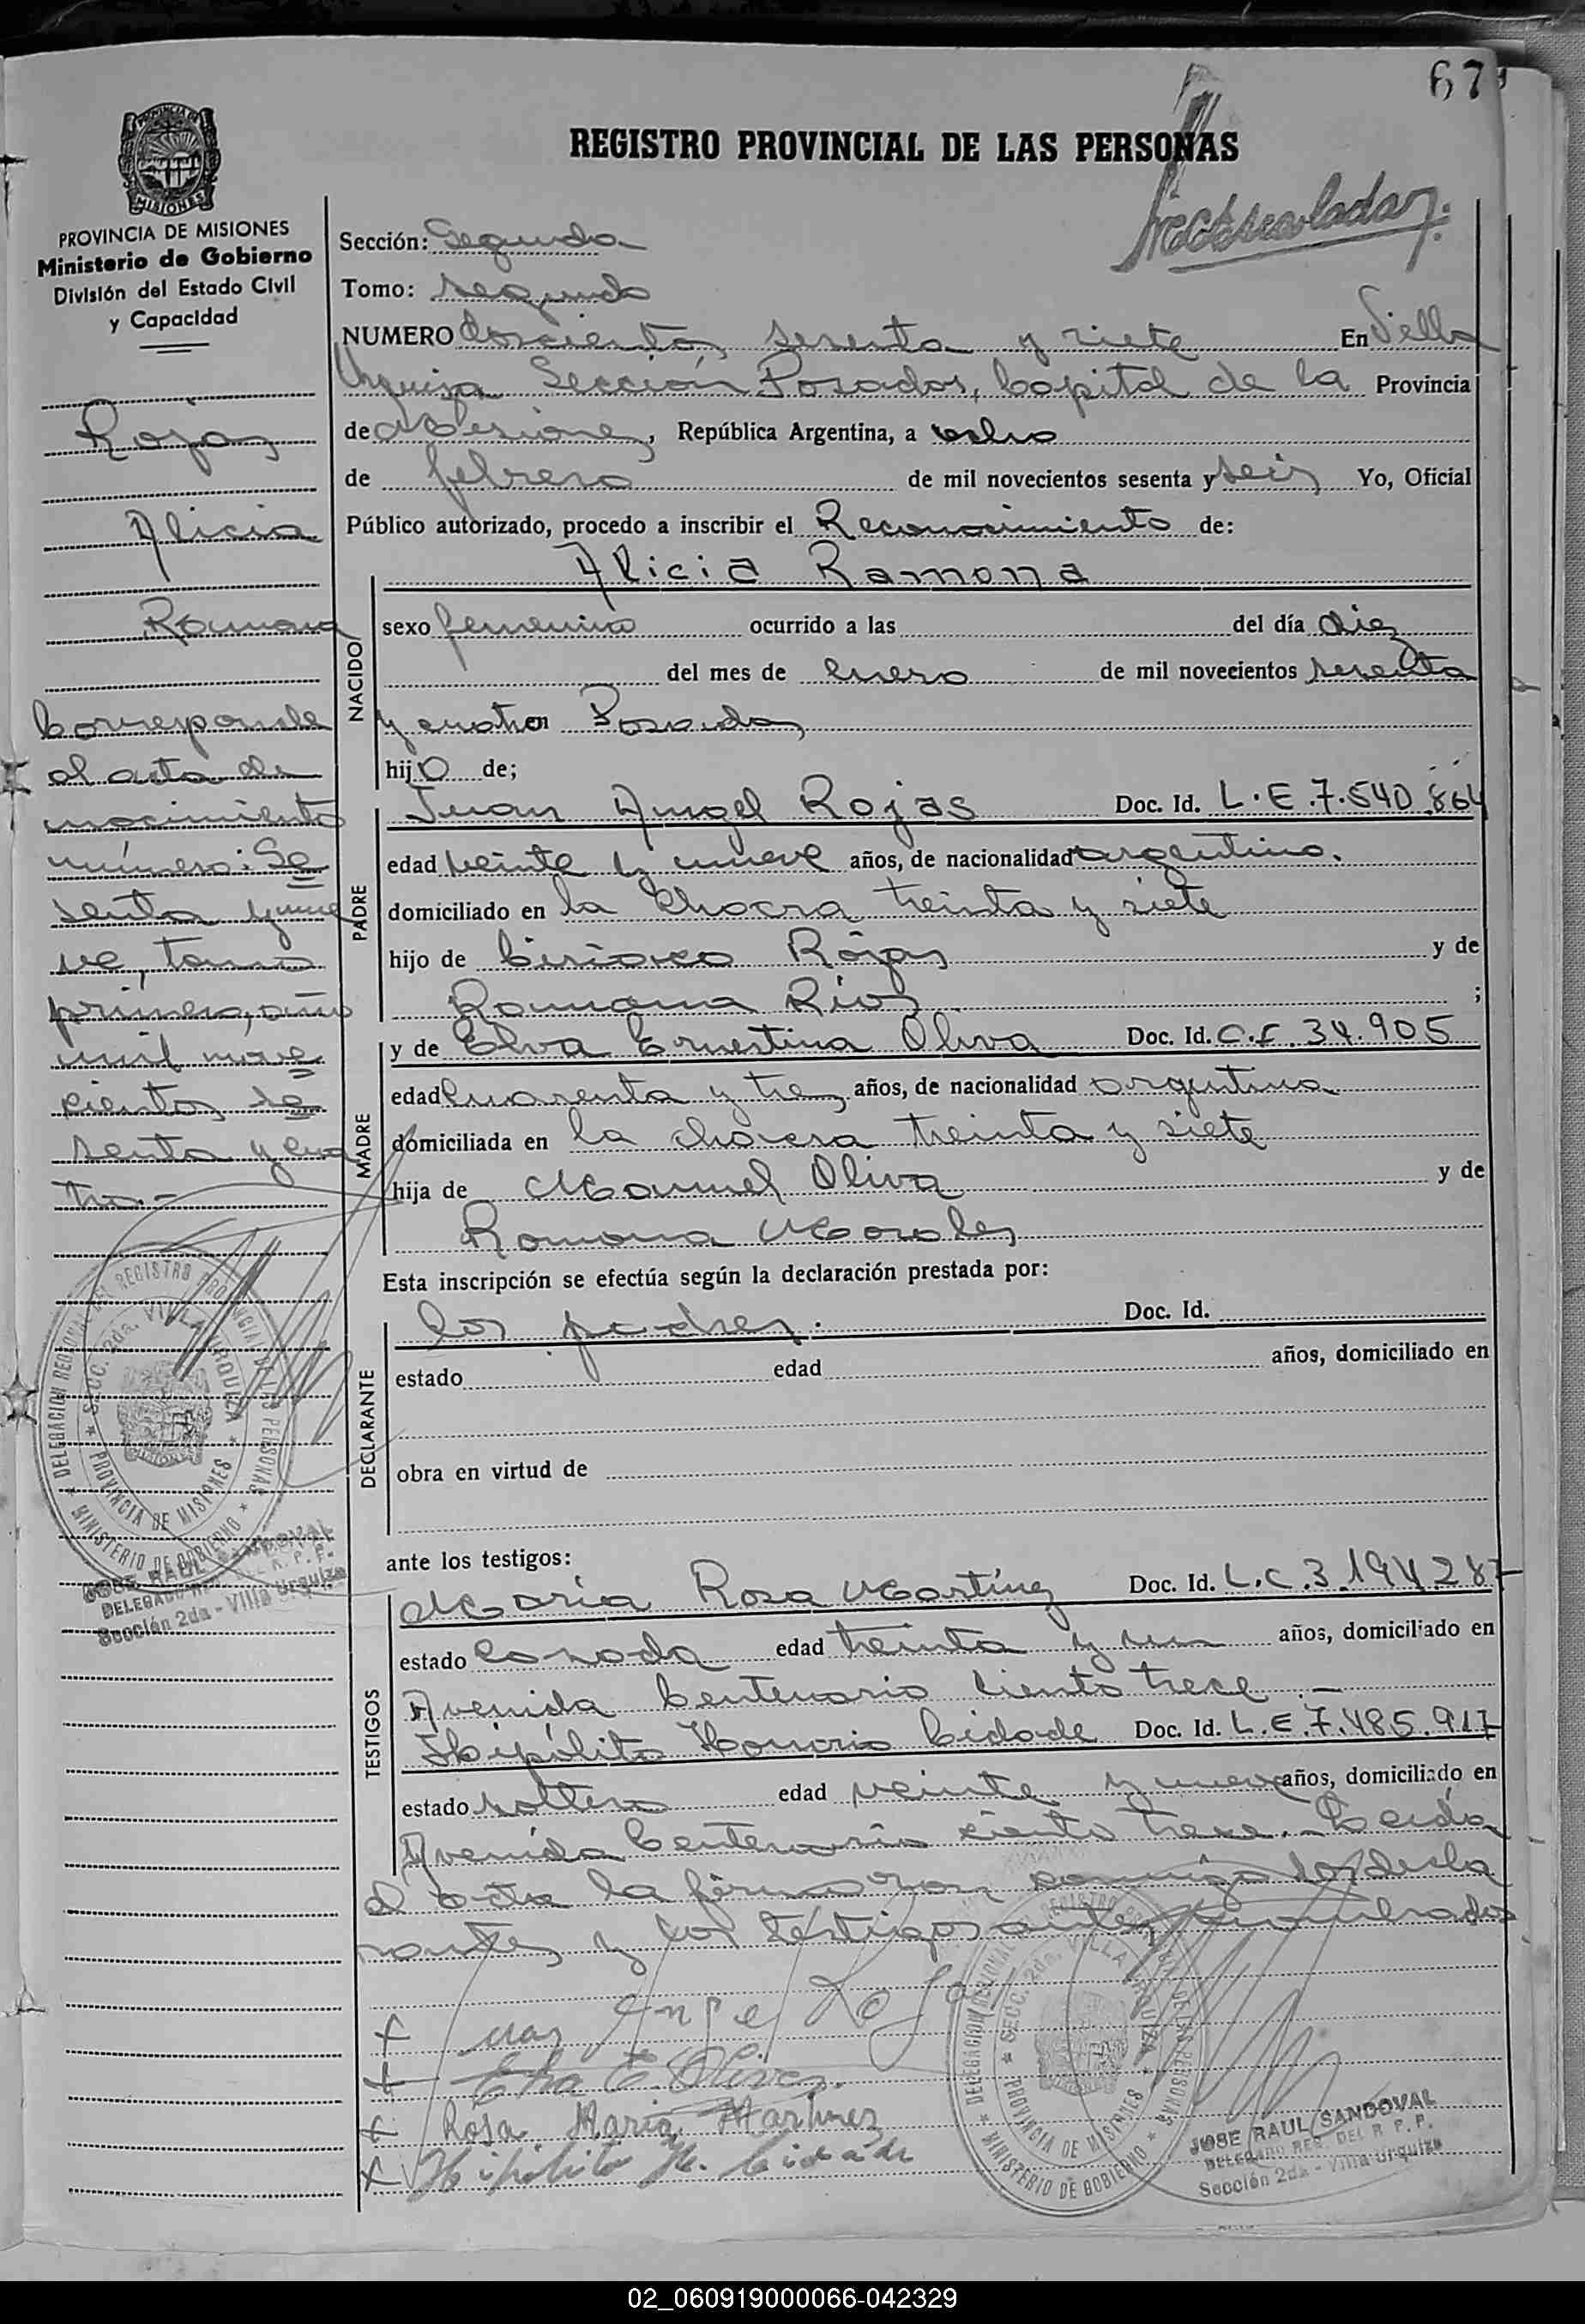 67
REGISTRO PROVINCIAL DE LAS PERSONAS
PROVINCIA DE MISIONES
Ministerio de Gobierno
División del Estado Civil
y Capacidad
Rojas
Alicia
Ramona
Corresponde
al acta de
nacimiento
número: Se
senta y nue
ve, tomo
primero, año
mil nove
cientos se
senta y cua
tro.-
Sección: Segunda
Tomo: segundo
NUMERO doscientos sesenta y siete En Villa
Urquiza Sección Posadas, Capital de la Provincia
de Misiones, República Argentina, a ocho
de febrero de mil novecientos sesenta y seis Yo, Oficial
Público autorizado, procedo a inscribir el Reconocimiento de:
Alicia Ramona
NACIDO
sexo femenino ocurrido a las del día diez
del mes de enero de mil novecientos sesenta
y cuatro en Posadas
hijo de;
PADRE
Juan Angel Rojas Doc. Id. L.E.7.540.864
edad veinte y nueve años, de nacionalidad argentino.
domiciliado en la Chacra treinta y siete
hijo de Ciriaco Rojas y de
Ramona Rios ;
MADRE
y de Elva Ernestina Oliva Doc. Id. C.I. 34.905
edad cuarenta y tres años, de nacionalidad argentina
domiciliada en la chacra treinta y siete
hija de Manuel Oliva y de
Romana Morales
Esta inscripción se efectúa según la declaración prestada por:
DECLARANTE
los padres. Doc. Id.
estado edad años, domiciliado en
obra en virtud de
ante los testigos:
TESTIGOS
María Rosa Martínez Doc. Id. L.C.3.194.287
estado casada edad treinta y un años, domiciliado en
Avenida Centenario ciento trece.-
Hipólito Honorio Cidade Doc. Id. L.E.7.485.917
estado soltero edad veinte y nueve años, domiciliado en
Avenida Centenario ciento trece.- Leída
el acta la firmaron conmigo los decla
rantes y los testigos antes nombrados
x Juan Angel Rojas
x Elva E. Oliva.
x Rosa Maria Martinez
x Hipolito H. Cidade
DELEGACION REGIONAL DEL REGISTRO PROVINCIAL DE LAS PERSONAS
MINISTERIO DE GOBIERNO
SECC. 2da. VILLA URQUIZA
PROVINCIA DE MISIONES
JOSE RAUL SANDOVAL
DELEGADO REG. DEL R. P. P.
Sección 2da - Villa Urquiza
DELEGACION REGIONAL DEL REGISTRO PROVINCIAL DE LAS PERSONAS
MINISTERIO DE GOBIERNO
SECC. 2da. VILLA URQUIZA
PROVINCIA DE MISIONES
JOSE RAUL SANDOVAL
DELEGADO REG. DEL R. P. P.
Sección 2da - Villa Urquiza
02_060919000066-042329